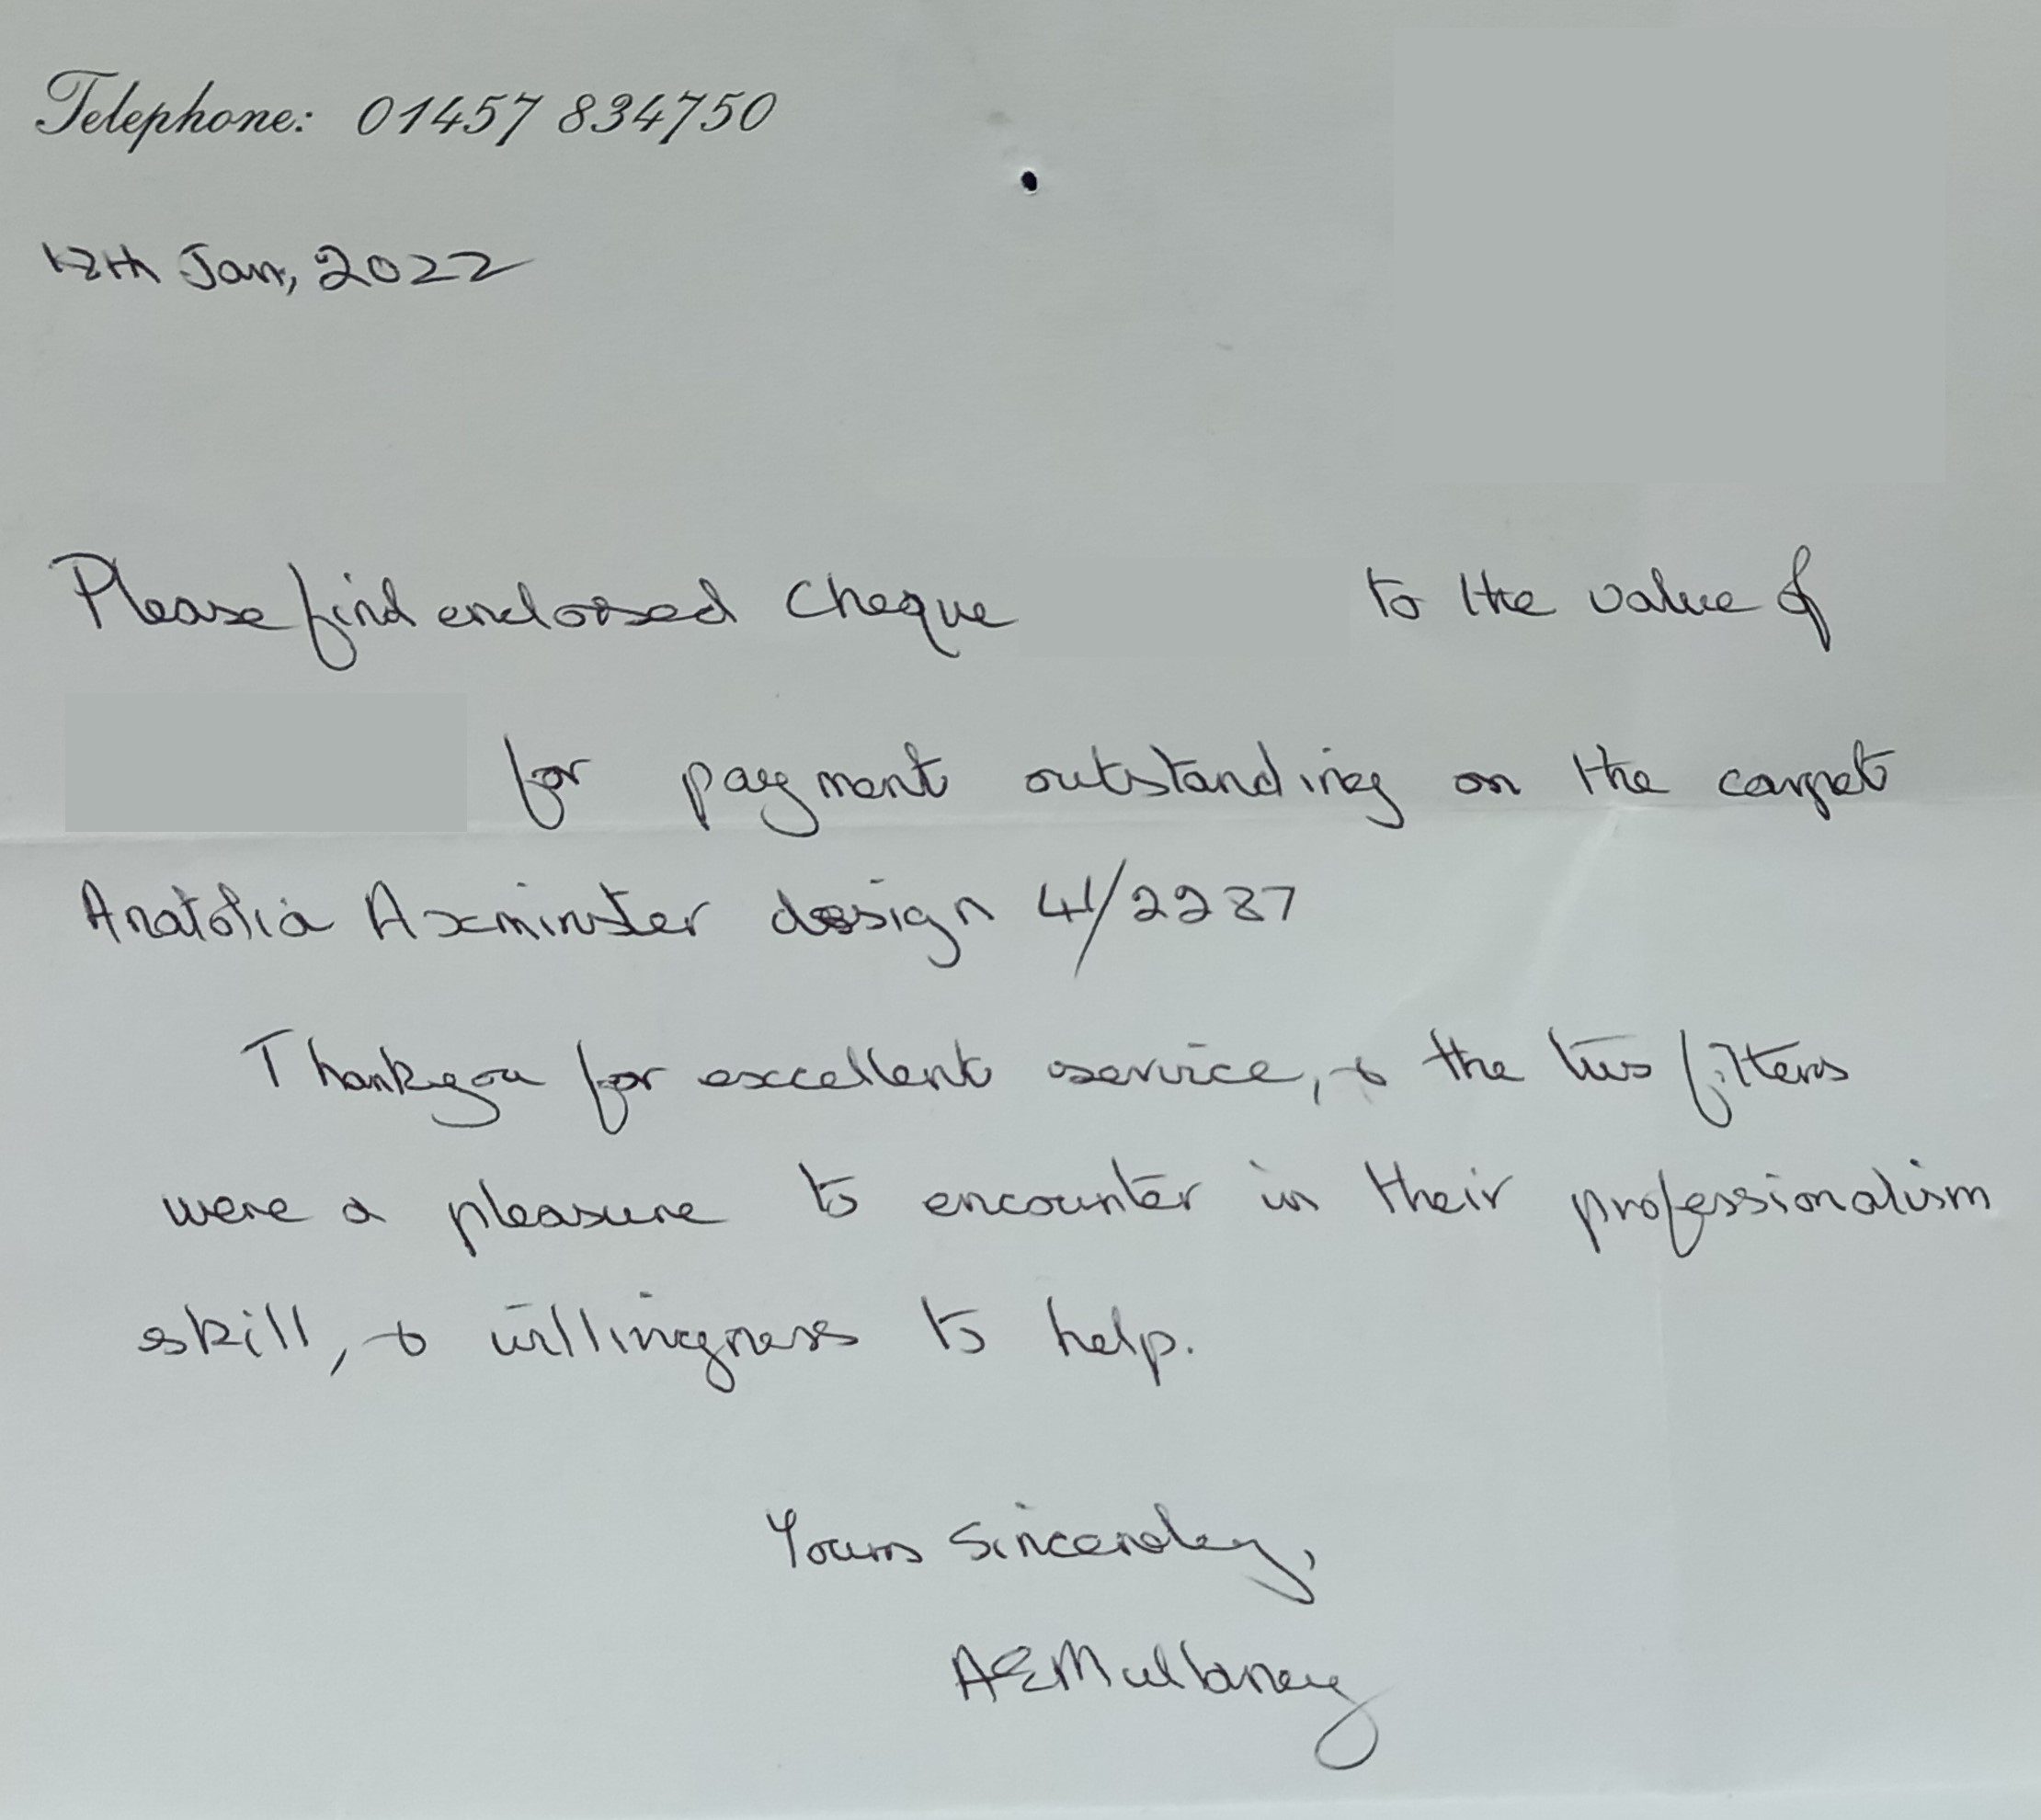 Telephone: 01457 834750
12th Jan, 2022
Please find enclosed cheque to the value of
for payment outstanding on the carpet
Anatolia Axminster design 41/2287
Thankyou for excellent service, & the two fitters
were a pleasure to encounter in their professionalism
skill, & willingness to help.
Yours Sincerely,
AEMullaney